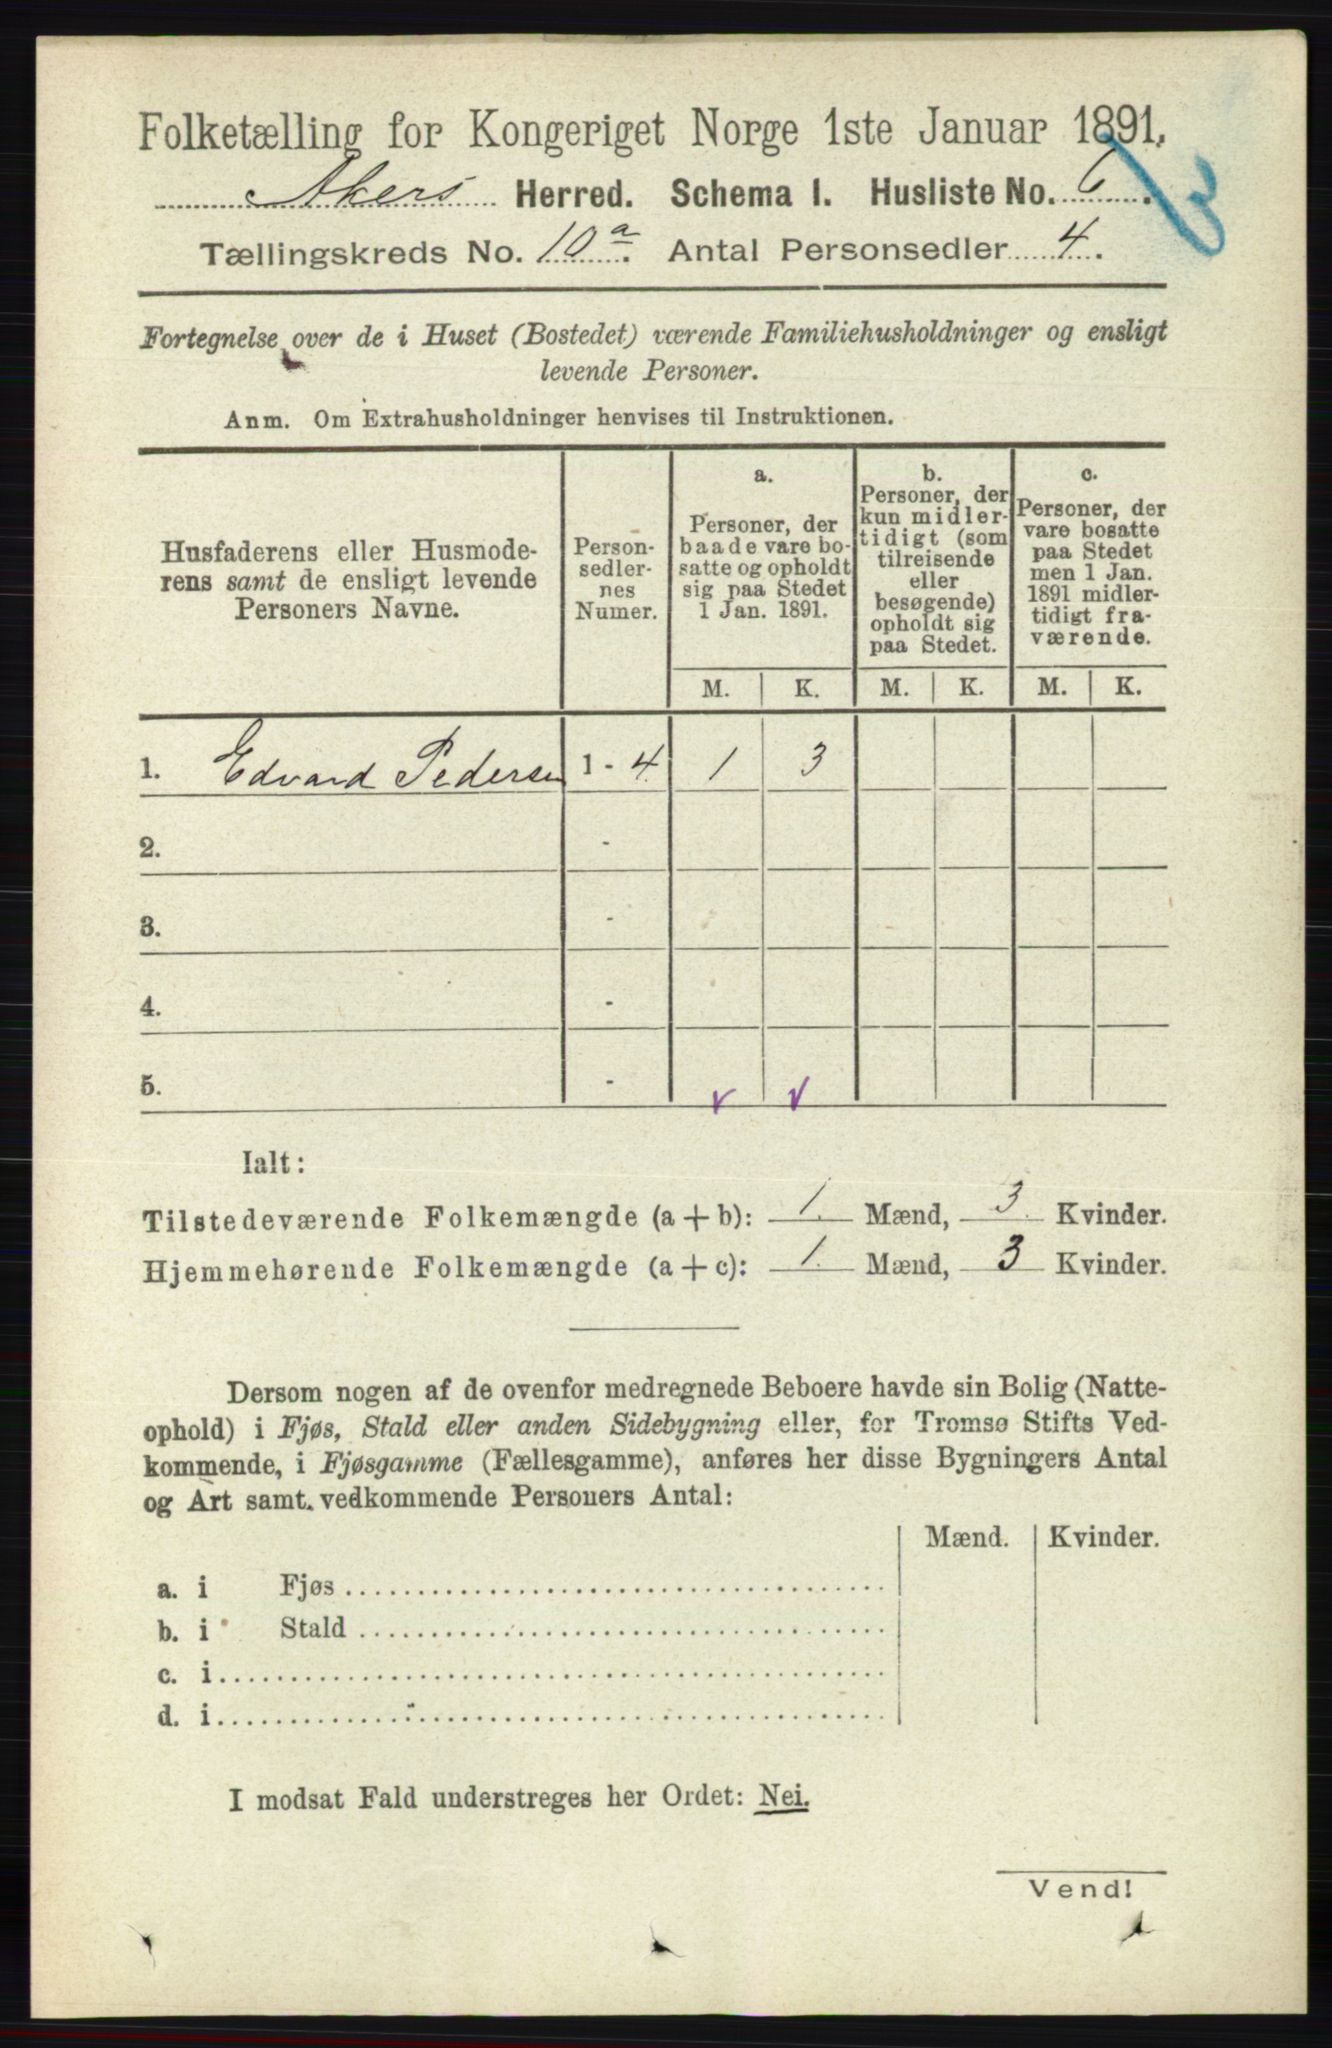 Folketælling for Kongeriget Norge 1ste Januar 1891.
Akers Herred. Schema I. Husliste No. 6.
Tællingskreds No. 10 a. Antal Personsedler 4.
Fortegnelse over de i Huset (Bostedet) værende Familiehusholdninger og ensligt
levende Personer.
Anm. Om Extrahusholdninger henvises til Instruktionen.
Husfaderens eller Husmode-
rens samt de ensligt levende
Personers Navne.
Person-
sedler-
nes
Numer.
a.
Personer, der
baade vare bo-
satte og opholdt
sig paa Stedet
1 Jan. 1891.
b.
Personer, der
kun midler-
tidigt (som
tilreisende
eller
besøgende)
opholdt sig
paa Stedet.
c.
Personer, der
vare bosatte
paa Stedet
men 1 Jan.
1891 midler-
tidigt fra-
værende.
M. K. M. K. M. K.
1. Edvard Pedersen 1 - 4 1 3
2. -
3. -
4. -
5. -
Ialt:
Tilstedeværende Folkemængde (a + b): 1. Mænd, 3. Kvinder.
Hjemmehørende Folkemængde (a + c): 1. Mænd, 3 Kvinder.
Dersom nogen af de ovenfor medregnede Beboere havde sin Bolig (Natte-
ophold) i Fjøs, Stald eller anden Sidebygning eller, for Tromsø Stifts Ved-
kommende, i Fjøsgamme (Fællesgamme), anføres her disse Bygningers Antal
og Art samt vedkommende Personers Antal:
Mænd. Kvinder.
a. i Fjøs
b. i Stald
c. i
d. i
I modsat Fald understreges her Ordet: Nei.
Vend!